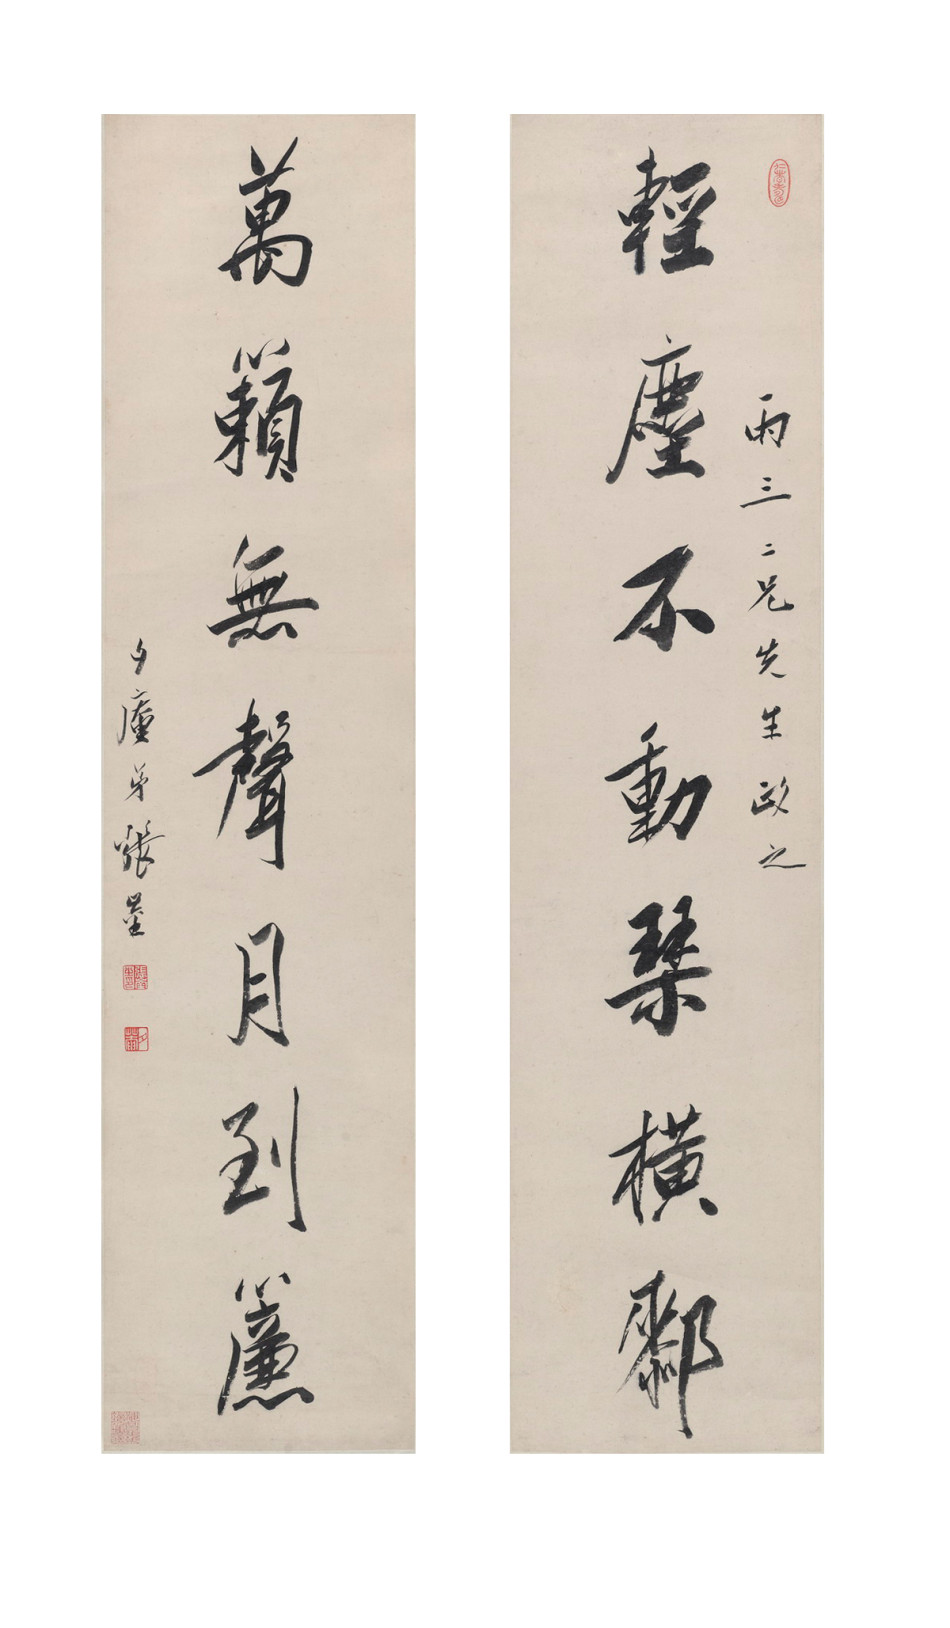 雨三二兄先生政之
輕塵不動琴橫䣛
萬籟無聲月到簾
夕庵弟張崟